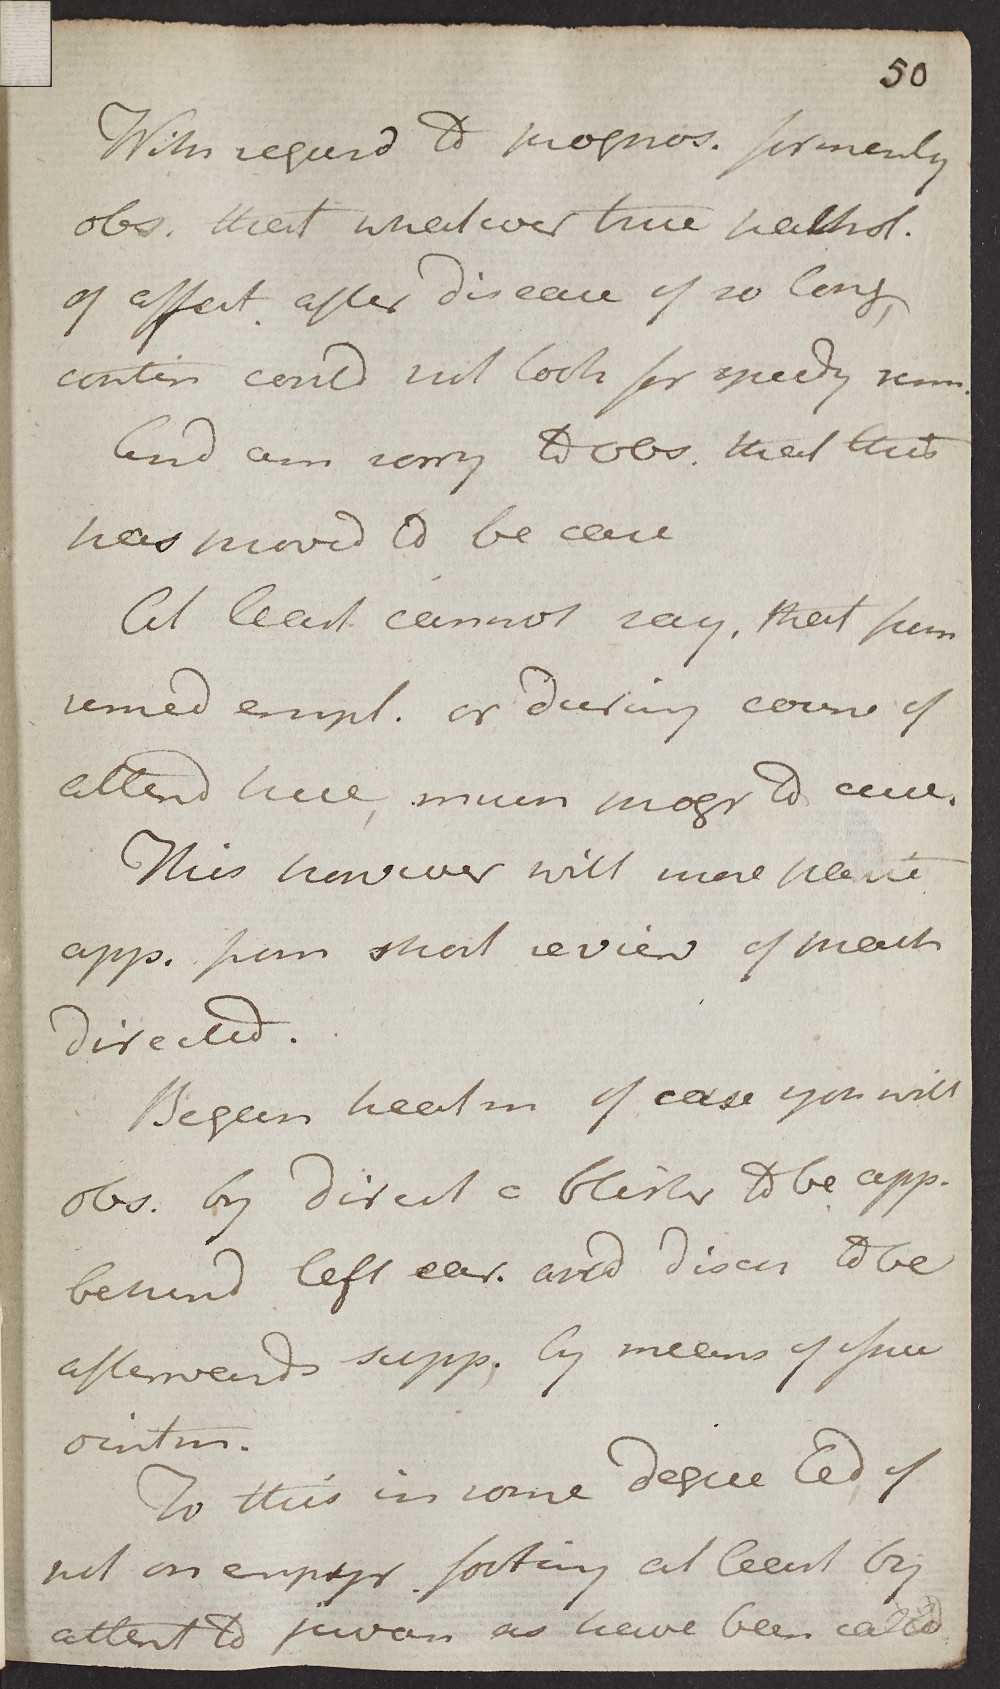 50
With regard to prognos. formerly
obs. that whatever true pathol.
of affect. after disease of so long
contin could not look for speedy rem.
And am sorry to obs. that this
has proved to be case
At least cannot say, that from
remed empl. or during course of
attend here, much progr to cure.
This however will more partic
app. from short review of pract
directed.
Began treatm of case you will
obs. by direct a blister to be app.
behind left ear. and discn to be
afterwards supp. by means of issue
ointm.
To this in some degree led if
not on empyr. footing at least by
attent to as have been called